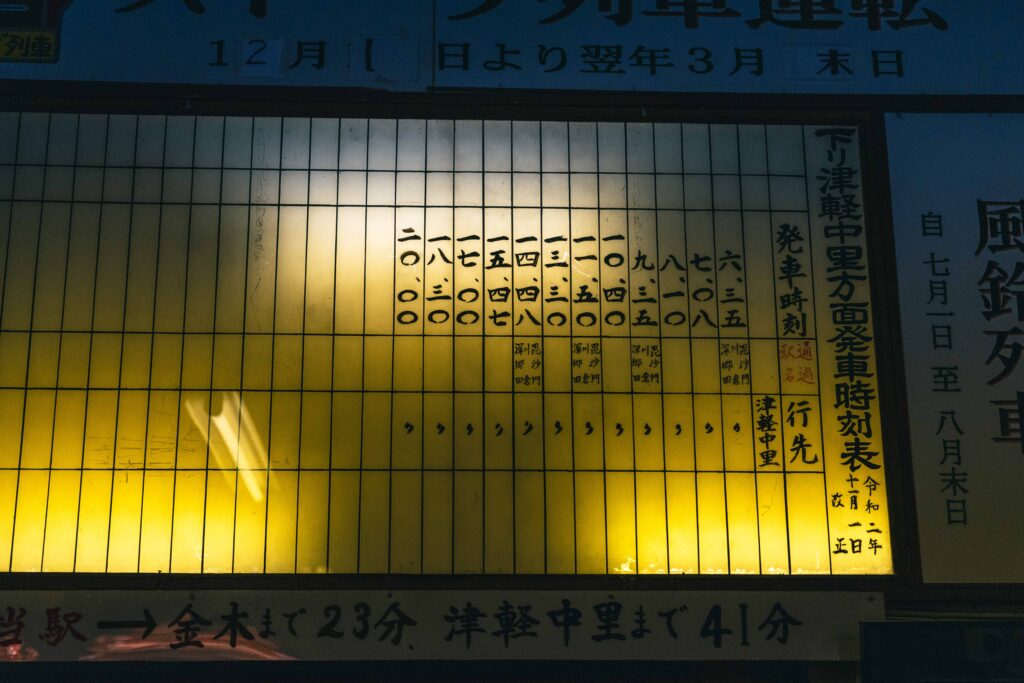 ストーブ列車運転
ブ列車
12月1日より翌年3月末日
風鈴列車
自 七月一日 至 八月末日
下り津軽中里方面発車時刻表
令和二年
十一月一日
改正
発車時刻 通過駅名 行先
津軽中里
六、三五 毘沙門 川倉 深郷田 〃
七、〇八 〃
八、一〇 〃
九、三五 毘沙門 川倉 深郷田 〃
一〇、四〇 〃
一一、五〇 毘沙門 川倉 深郷田 〃
一三、三〇 〃
一四、四八 毘沙門 川倉 深郷田 〃
一五、四七 〃
一七、〇〇 〃
一八、三〇 〃
二〇、〇〇 〃
当駅→金木まで23分 津軽中里まで41分